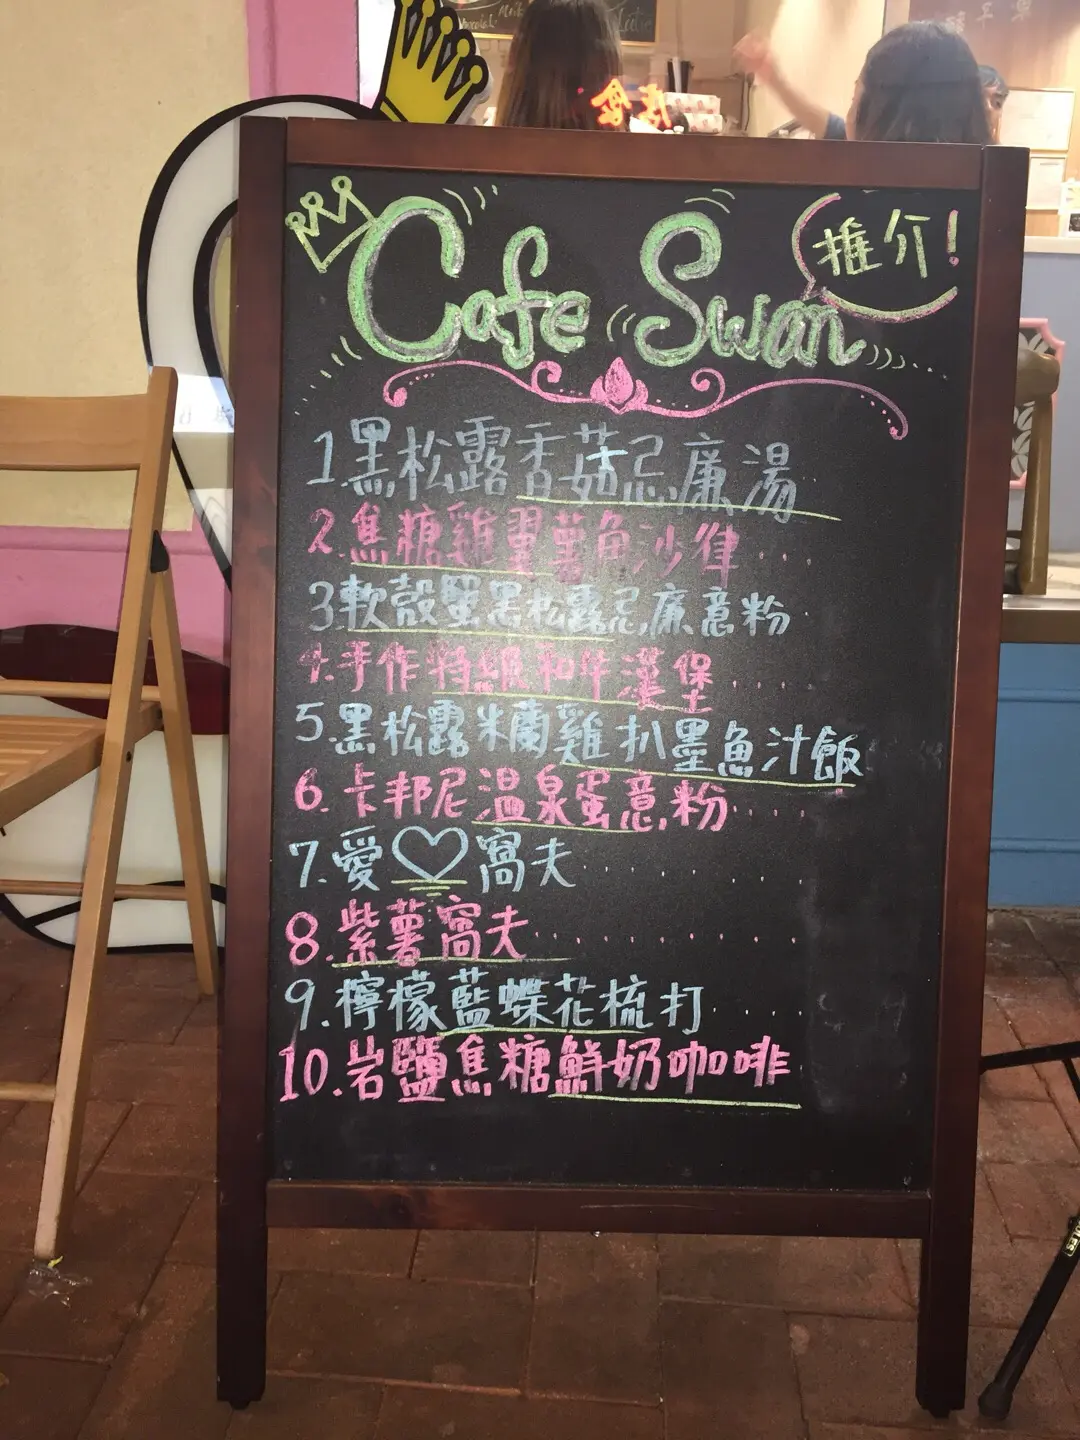 Cafe Swan
推介!
1.黑松露香菇忌廉湯
2.焦糖雞翼薯角沙律
3.軟殼蟹黑松露忌廉意粉
4.手作特級和牛漢堡
5.黑松露米蘭雞扒墨魚汁飯
6.卡邦尼溫泉蛋意粉
7.愛♡窩夫
8.紫薯窩夫
9.檸檬藍蝶花梳打
10.岩鹽焦糖鮮奶咖啡